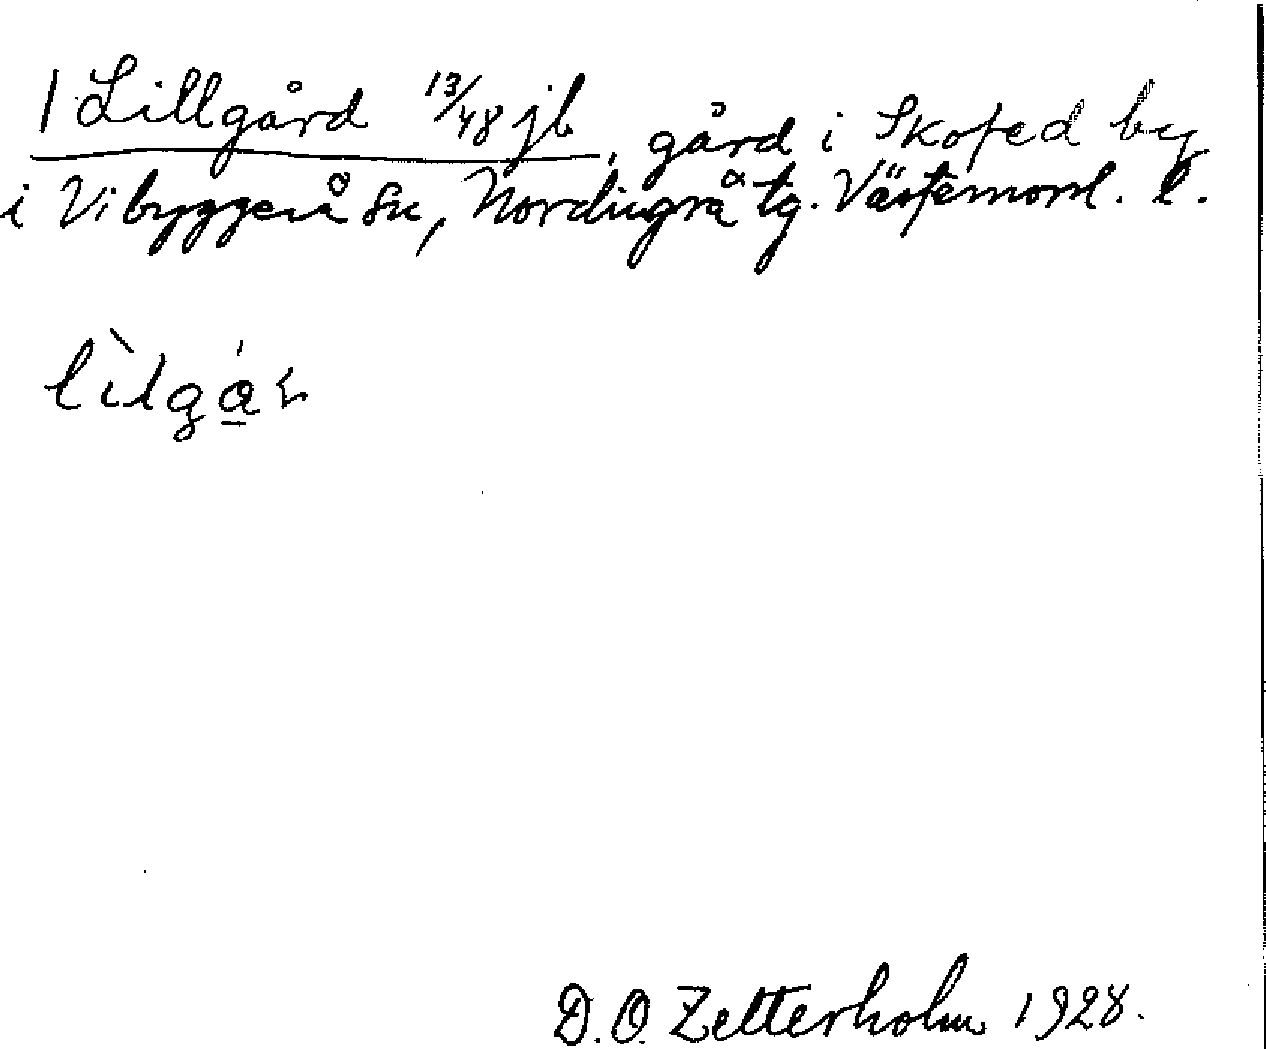 1 Lillgård 13/48 jb, gård i Skoted by
i Vibyggerå sn, Nordingrå tg. Västernorrl. l.
D.O. Zetterholm 1928.